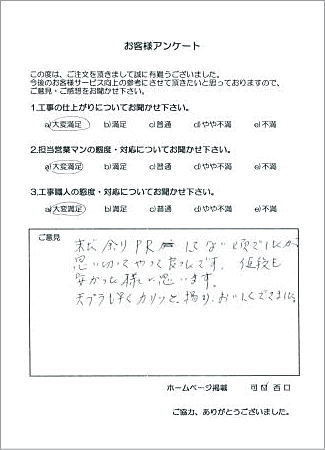 お客様アンケート
この度は、ご注文を頂きまして誠に有難うございました。
今後のお客様サービス向上の参考にさせて頂きたいと思っておりますので、
ご意見・ご感想をお聞かせ下さい。
1.工事の仕上がりについてお聞かせ下さい。
a)大変満足 b)満足 c)普通 d)やや不満 e)不満
2.担当営業マンの態度・対応についてお聞かせ下さい。
a)大変満足 b)満足 c)普通 d)やや不満 e)不満
3.工事職人の態度・対応についてお聞かせ下さい。
a)大変満足 b)満足 c)普通 d)やや不満 e)不満
ご意見
未だ余りPR してない頃でしたが
思い切ってやって良かったです。値段も
安かった様に思います。
天プラも早くカリッと揚り、おいしくできました。
ホームページ掲載 可 否
ご協力、ありがとうございました。